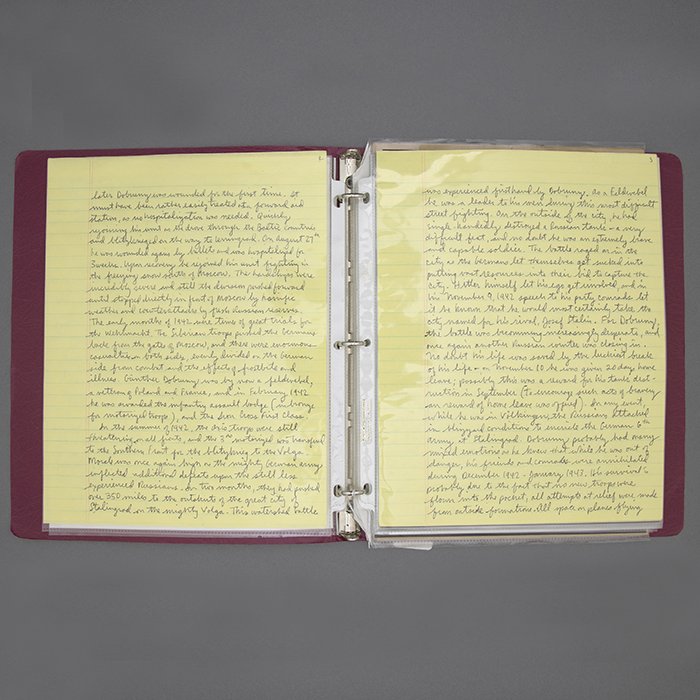 2.
later Dobruny was wounded for the first time. It
must have been rather easily treated at a forward aid
station, as no hospitalization was needed. Quickly
rejoining his unit as the drove through the Baltic Countries
and blitzkrieged on the way to Leningrad. On August 27th
he was wounded again by bullets and was hospitalized for
weeks. Upon recovery he rejoined his unit fighting in
the freezing snow south of Moscow. The hardships were
incredibly severe and still the division pushed forward
until stopped directly in front of Moscow by horrific
weather and counterattacks by fresh Russian reserves.
The early months of 1942 were times of great trials for
the Wehrmacht. The Siberian troops pushed the Germans
back from the gates of Moscow, and there were enormous
casualties on both sides, evenly divided on the German
side from combat and the effects of frostbite and
illness. Günther Dobruny was by now a feldwebel,
a veteran of Poland and France, and in February 1942
he was awarded the infantry assault badge, (in bronze
for motorized troops), and the Iron Cross First Class.
In the summer of 1942, the Axis troops were still
threatening on all fronts, and the 3rd motorized was transferred
to the Southern Front for the blitzkrieg to the Volga.
Morale was once again high as the mighty German army
inflicted additional defeats upon the still less
experienced Russians. In two months they had pushed
over 350 miles to the outskirts of the great city of
Stalingrad on the mighty Volga. This watershed battle
3
was experienced firsthand by Dobruny. As a Feldwebel
he was a leader to his men during this most difficult
street fighting. On the outside of the city, he had
single-handedly destroyed a Russian tank - a very
difficult feat, and no doubt he was an extremely brave
and capable soldier. The battle raged on in the
city as the Germans let themselves get sucked into
putting vast resources into their bid to capture the
city. Hitler himself let his ego get involved, and in
his November 9, 1942 speech to his party comrades let
it be known that he would most certainly take the
city named for his rival, Josef Stalin. For Dobruny,
the battle was becoming increasingly desperate, and
once again another Russian winter was closing in.
No doubt his life was saved by the luckiest break
of his life - on November 10 he was given 20 day home
leave; possibly this was a reward for his tank dest-
ruction in September (to encourage such acts of bravery
an reward of home leave was offered). In any event,
while he was in Völkingen, the Russians attacked
in blizzard conditions to encircle the German 6th
army at Stalingrad. Dobruny probably had many
mixed emotions as he knew that while he was out of
danger, his friends and comrades were annihilated
during December 1942 - January 1943. His survival is
probably due to the fact that no new troops were
flown into the pocket, all attempt at relief were made
from outside formations. All space on planes flying